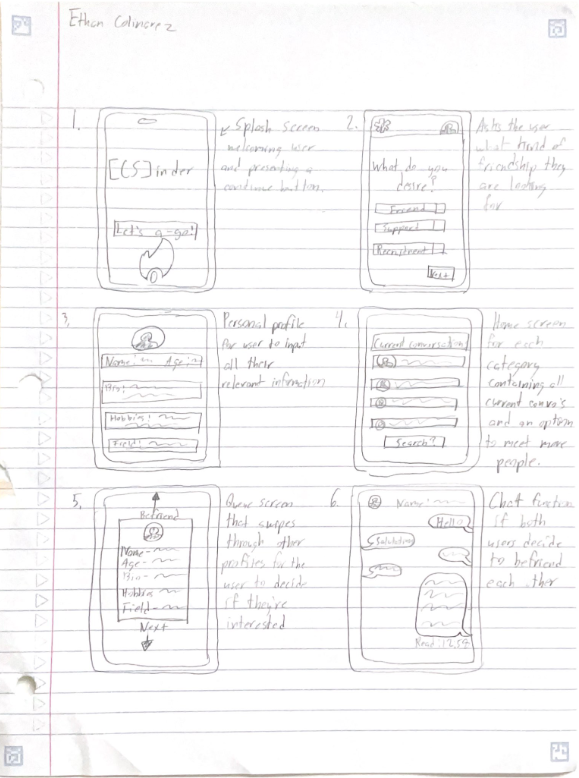 Ethan Colinarez
1.
[CS]inder
Let's a-go!
Splash screen
welcoming user
and presenting a
continue button.
2.
What do you
desire?
Friend
Support
Recruitment
Next
Asks the user
what kind of
friendship they
are looking
for
3.
Name: Age:
Bio:
Hobbies:
Field:
Personal profile
for user to input
all their
relevant information
4.
Current conversations
Search?
Home screen
for each
category
containing all
current convo's
and an option
to meet more
people.
5.
Befriend
Name -
Age -
Bio -
Hobbies
Field -
Next
Queue screen
that swipes
through other
profiles for the
user to decide
if they're
interested
6.
Name:
Hello
Salutations
Read: 12:54
Chat function
if both
users decide
to befriend
each other